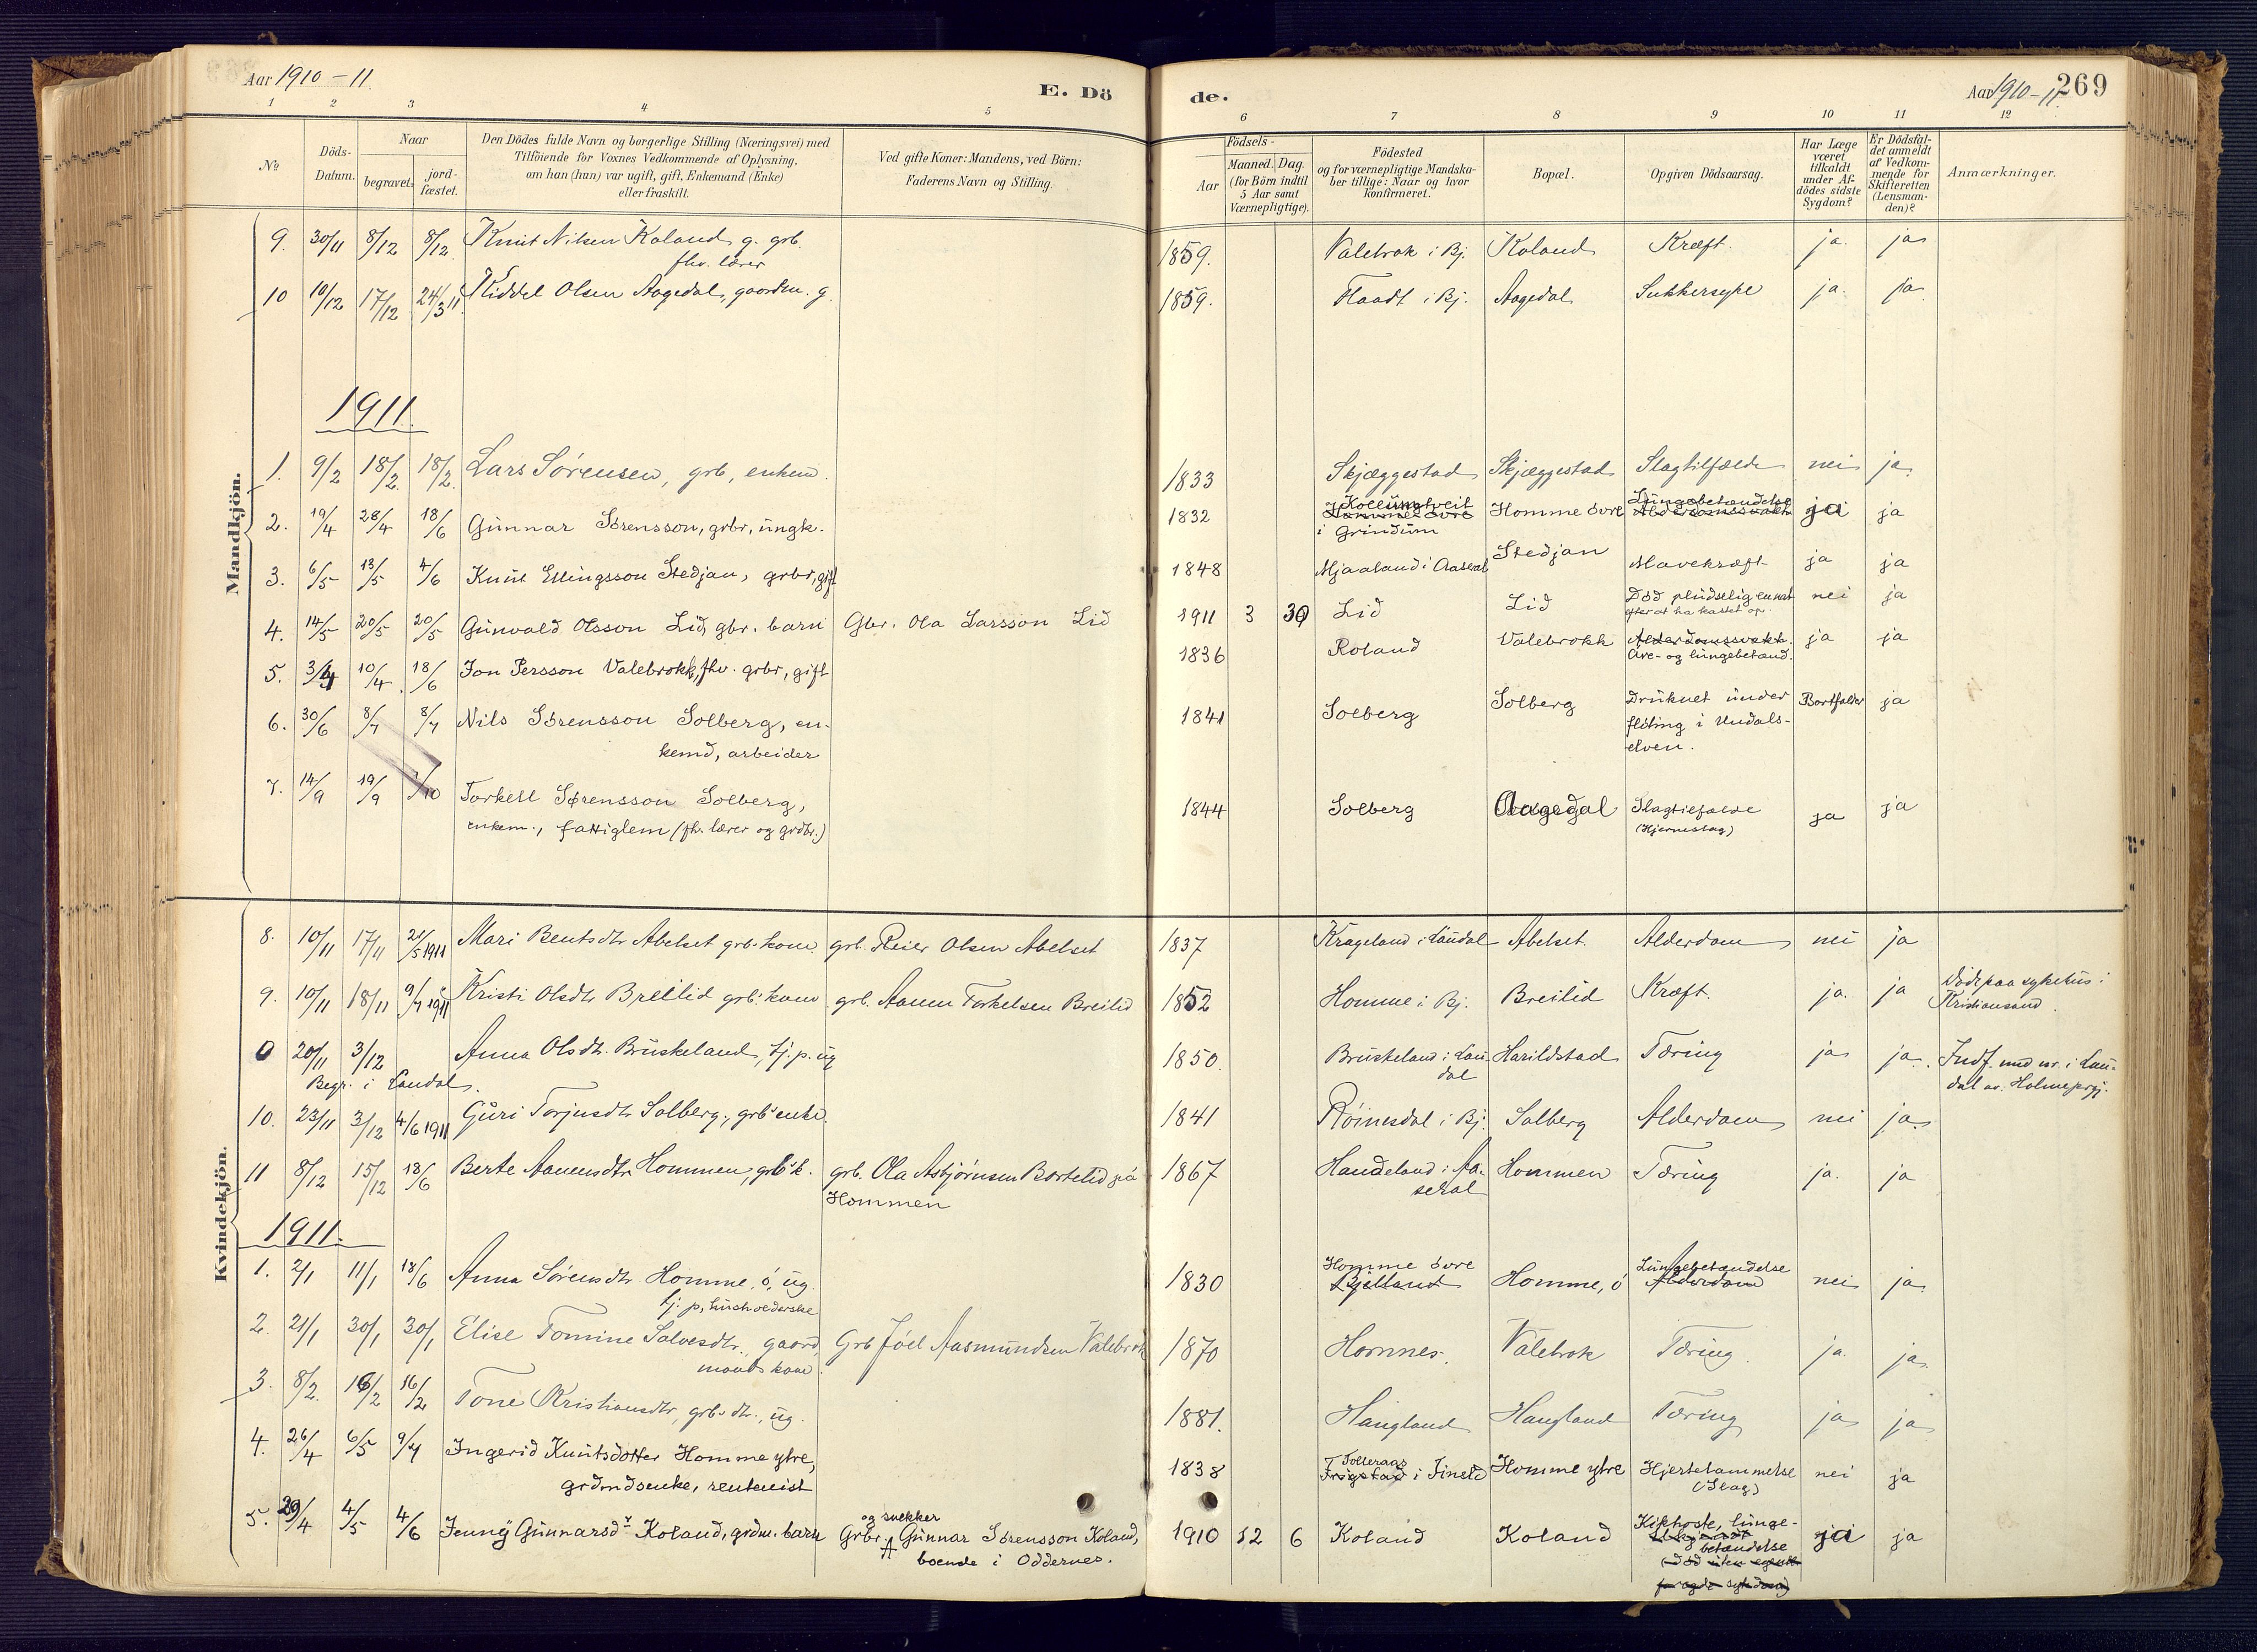 Aar 1910 - 11.
E. Dö
de.
Aar 1910 - 11.
269
1 2 3 4 5 6 7 8 9 10 11 12
No
Döds-Datum.
Naar
begravet.
jordfæstet.
Den Dödes fulde Navn og borgerlige Stilling (Næringsvei) med
Tilföiende for Voxnes Vedkommende af Oplysning,
om han (hun) var ugift, gift, Enkemand (Enke)
eller fraskilt.
Ved gifte Koner: Mandens, ved Börn:
Faderens Navn og Stilling.
Födsels-
Aar
Maaned. Dag.
(for Börn indtil
5 Aar samt
Værnepligtige).
Födested
og for værnepligtige Mandska-
ber tillige: Naar og hvor
konfirmeret.
Bopæl.
Opgiven Dödsaarsag.
Har Læge
været
tilkaldt
under Af-
dödes sidste
Sygdom?
Er Dödsfal-
det anmeldt
af Vedkom-
mende for
Skifteretten
(Lensman-
den)?
Anmærkninger.
Mandkjön.
9. 30/11 8/12 8/12 Knut Nilsen Koland, g. grb. 1859. Valebrok i Bj. Koland Kræft. ja. ja
fhv. lærer
10 10/12 17/12 24/3 11. Kiddel Olsen Aagedal, gaardm. g. 1859. Flaadt i Bj. Aagedal Sukkersyke ja. ja
1911.
1. 9/2 18/2. 18/2. Lars Sørensen, grb, enkem. 1833 Skjæggestad Skjæggestad Slagtilfælde nei ja.
2. 19/4 28/4 18/6 Gunnar Sørensson, grbr, ungk. 1832 Homme övre Kollungtveit i Grindum Homme övre Alderdomssvakh. Lungebetændelse ja ja
3. 6/5 13/5 4/6 Knut Ellingsson Stedjan, grbr, gift 1848 Mjaaland i Aaseral Stedjan Mavekræft ja ja
4. 14/5 20/5 20/5 Gunvald Olsson Lid, gbr. barn Gbr. Ola Larsson Lid 1911 3 30 Lid Lid Död pludselig en nat nei ja
efter at ha kastet op.
5. 3/4 10/4 18/6 Jon Persson Valebrokk, fhv. grbr, gift 1836 Roland Valebrokk Alderdomssvakh. ja ja
Are- og lungebetænd.
6. 30/6 8/7 8/7 Nils Sørensson Solberg, en- 1841 Solberg Solberg Druknet under Bortfalder ja
kemd, arbeider flöting i Undals-
elven.
7. 14/9 19/9 /10 Torkell Sørensson Solberg, 1844 Solberg Aagedal Slagtilfælde ja ja
enkem., fattiglem (fh. lærer og grdbr.) (Hjerneslag)
Kvindekjön.
8. 10/11 17/11 21/5 1911 Mari Bentsdtr Abelset grb. kone. grb. Reier Olsen Abelset 1837 Krageland i Laudal Abelset. Alderdom nei ja
9. 10/11 18/11 9/7 1911 Kristi Olsdtr Breilid grb. kone grb. Aanen Torkelsen Breilid 1852 Homme i Bj. Breilid Kræft. ja. ja Döde paa sykehus i
Kristiansand.
0 20/11 3/12 Anna Olsdtr. Bruskeland, tj. p. ug 1850. Bruskeland i Lau- Harildstad Tæring ja ja. Indf. und nr. i Lau-
Begr. i Laudal. dal dal av. Holme prgj.
10. 23/11 3/12 4/6 1911 Guri Torjusdtr Solberg, grb. enke. 1841 Röinesdal i Bj. Solberg Alderdom nei ja.
11 8/12 15/12 18/6 Berte Aanensdtr Hommen, grb. k. grb. Ola Asbjørnsen Bortelid på 1867 Handeland i Aa- Hommen Tæring ja. ja
Hommen seral
1911.
1. 2/1 11/1 18/6 Anna Sørensdtr Homme, ö, ug. 1830 Bjelland Homme övre Homme, ö Alderdom Lungebetændelse nei ja.
tj. p, husholderske
2. 21/1 30/1 30/1 Elise Tomine Salvesdtr., gaard Grb Joël Aasmundsen Valebrok 1870 Homnes. Valebrok Tæring. ja. ja.
mands kone.
3. 8/2. 16/2 16/2 Tone Kristiansdtr, grb. dtr., ug. 1881. Haugland Haugland Tæring ja ja
4. 26/4 6/5 9/7 Ingerid Knutsdotter Homme ytre, 1838 Frigstad i Finsld Tolleraas Homme ytre Hjertelammelse nei ja
grdmdsenke, rentenist (Slag)
5. 29/4 4/5 4/6 Jenny Gunnarsdr Koland, grdm. barn Grbr. og snekker Gunnar Sørensson Koland, 1910 12 6 Koland Koland Kikhoste, lunge- ja ja
boende i Oddernes. betændelse
(död uten egentl.